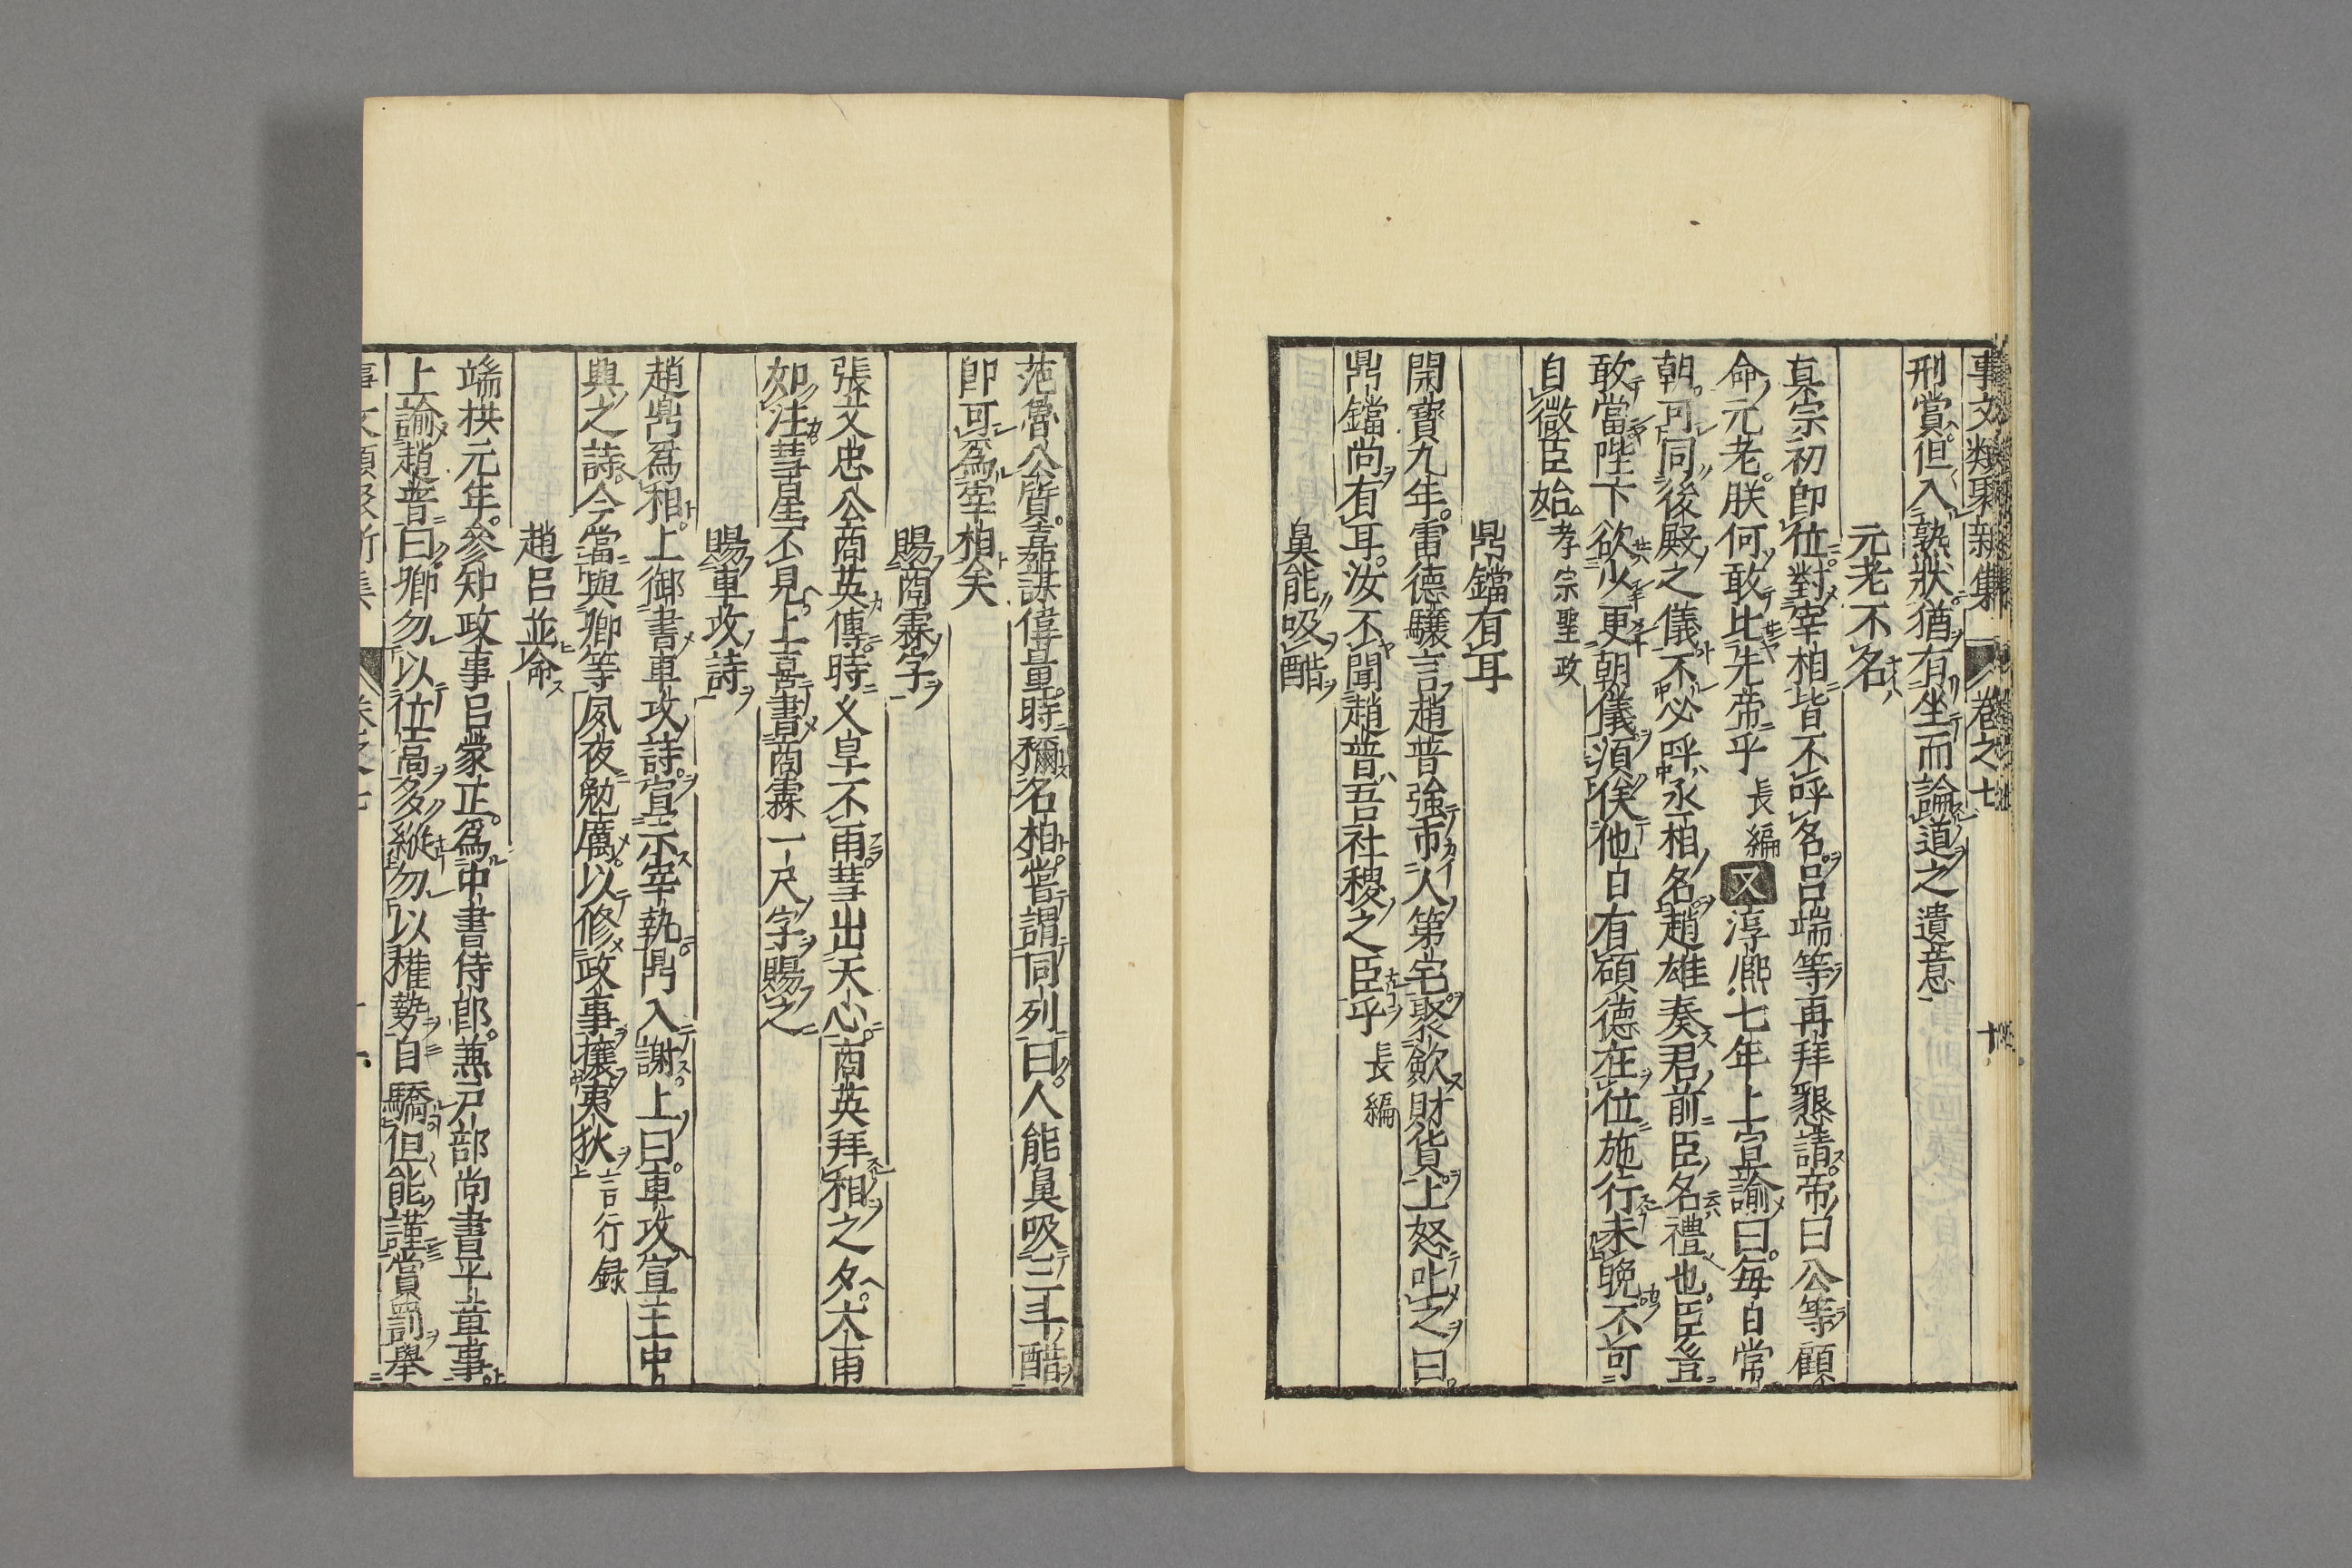 事文類聚新集 卷之七 十
刑賞但入熟狀猶有坐而論道之遺意
元老不名
真宗初卽位對宰相皆不呼名呂端等再拜懇請帝曰公等顧
命元老朕何敢比先帝乎 長編 又 淳熈七年上宣諭曰每日常
朝可同後殿之儀不必呼丞相名趙雄奏君前臣名禮也臣豈
敢當陛下欲少更朝儀須俟他日有碩德在位施行未晚不可
自微臣始 孝宗聖政
鼎鐺有耳
開寶九年雷德驤言趙普強市人第宅聚歛財貨上怒叱之曰
鼎鐺尚有耳汝不聞趙普吾社稷之臣乎 長編
鼻能吸酷
范魯公質嘉謀偉量時稱名相嘗謂同列曰人能鼻吸三斗酷
卽可爲宰相矣
賜商霖字
張文忠公商英傳時乂旱不雨彗出天心商英拜相之夕大雨
如注彗星不見上喜書商霖一尺字賜之
賜車攻詩
趙鼎爲相上御書車攻詩宣示宰執鼎入謝上曰車攻宣王中
興之詩今當與卿等夙夜勉厲以修政事攘夷狄 言行録
趙呂並命
端拱元年參知政事呂蒙正爲中書侍郎兼戸部尚書平章事
上諭趙普曰卿勿以位高多縱勿以權勢自驕但能謹賞罰舉
事文類聚新集 卷之七